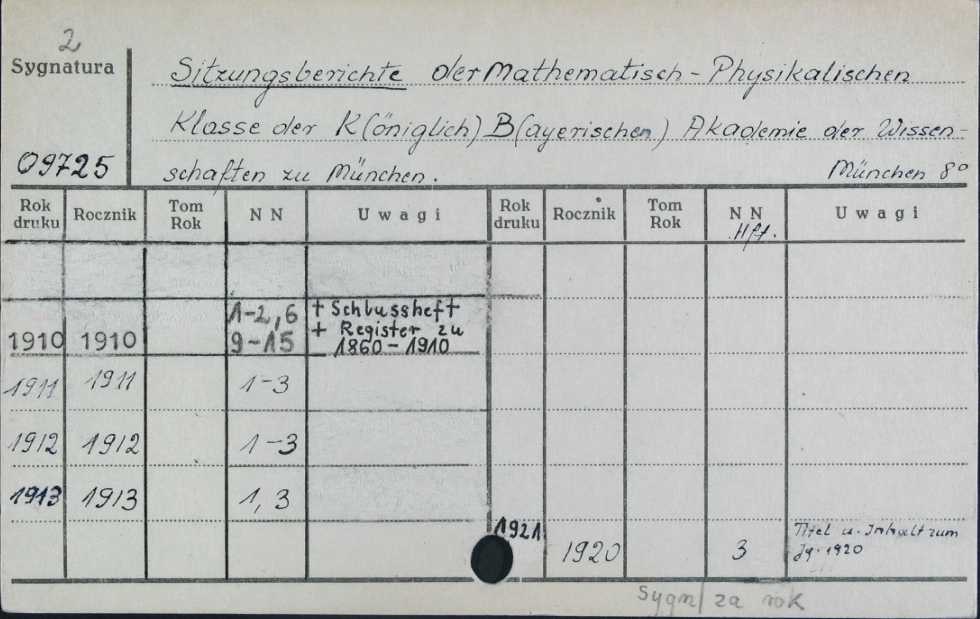 2
Sygnatura
09725
Sitzungsberichte der Mathematisch-Physikalischen
Klasse der K(öniglich) B(ayerischen) Akademie der Wissen-
schaften zu München.
München 8°
Rok druku Rocznik Tom Rok N N Uwagi Rok druku Rocznik Tom Rok N N Uwagi
Hft.
1910 1910 1-2, 6 9-15 + Schlussheft
+ Register zu
1860-1910
1911 1911 1-3
1912 1912 1-3
1913 1913 1, 3
1921 1920 3 Titel u. Inhalt zum
Jg. 1920
Sygn/ za rok